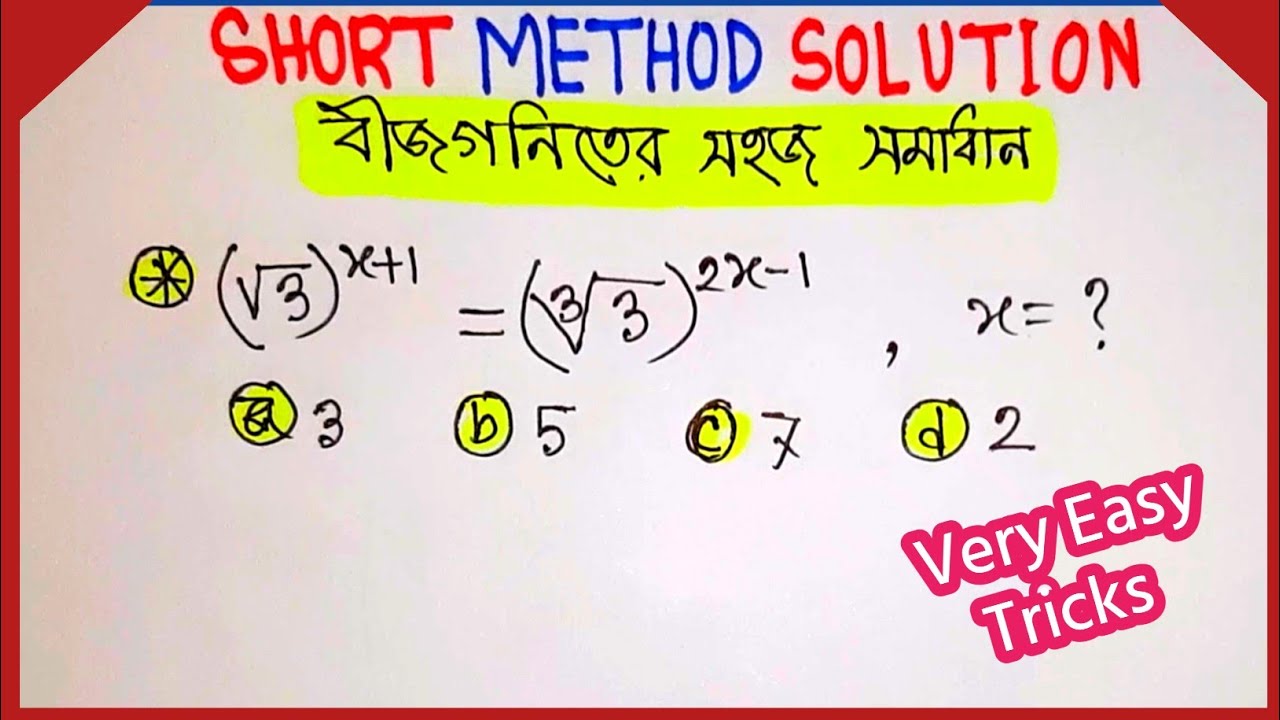 SHORT METHOD SOLUTION
বীজগনিতের সহজ সমাধান
* (√3)^(x+1) = (∛3)^(2x-1), x = ?
a 3 b 5 c 7 d 2
Very Easy
Tricks